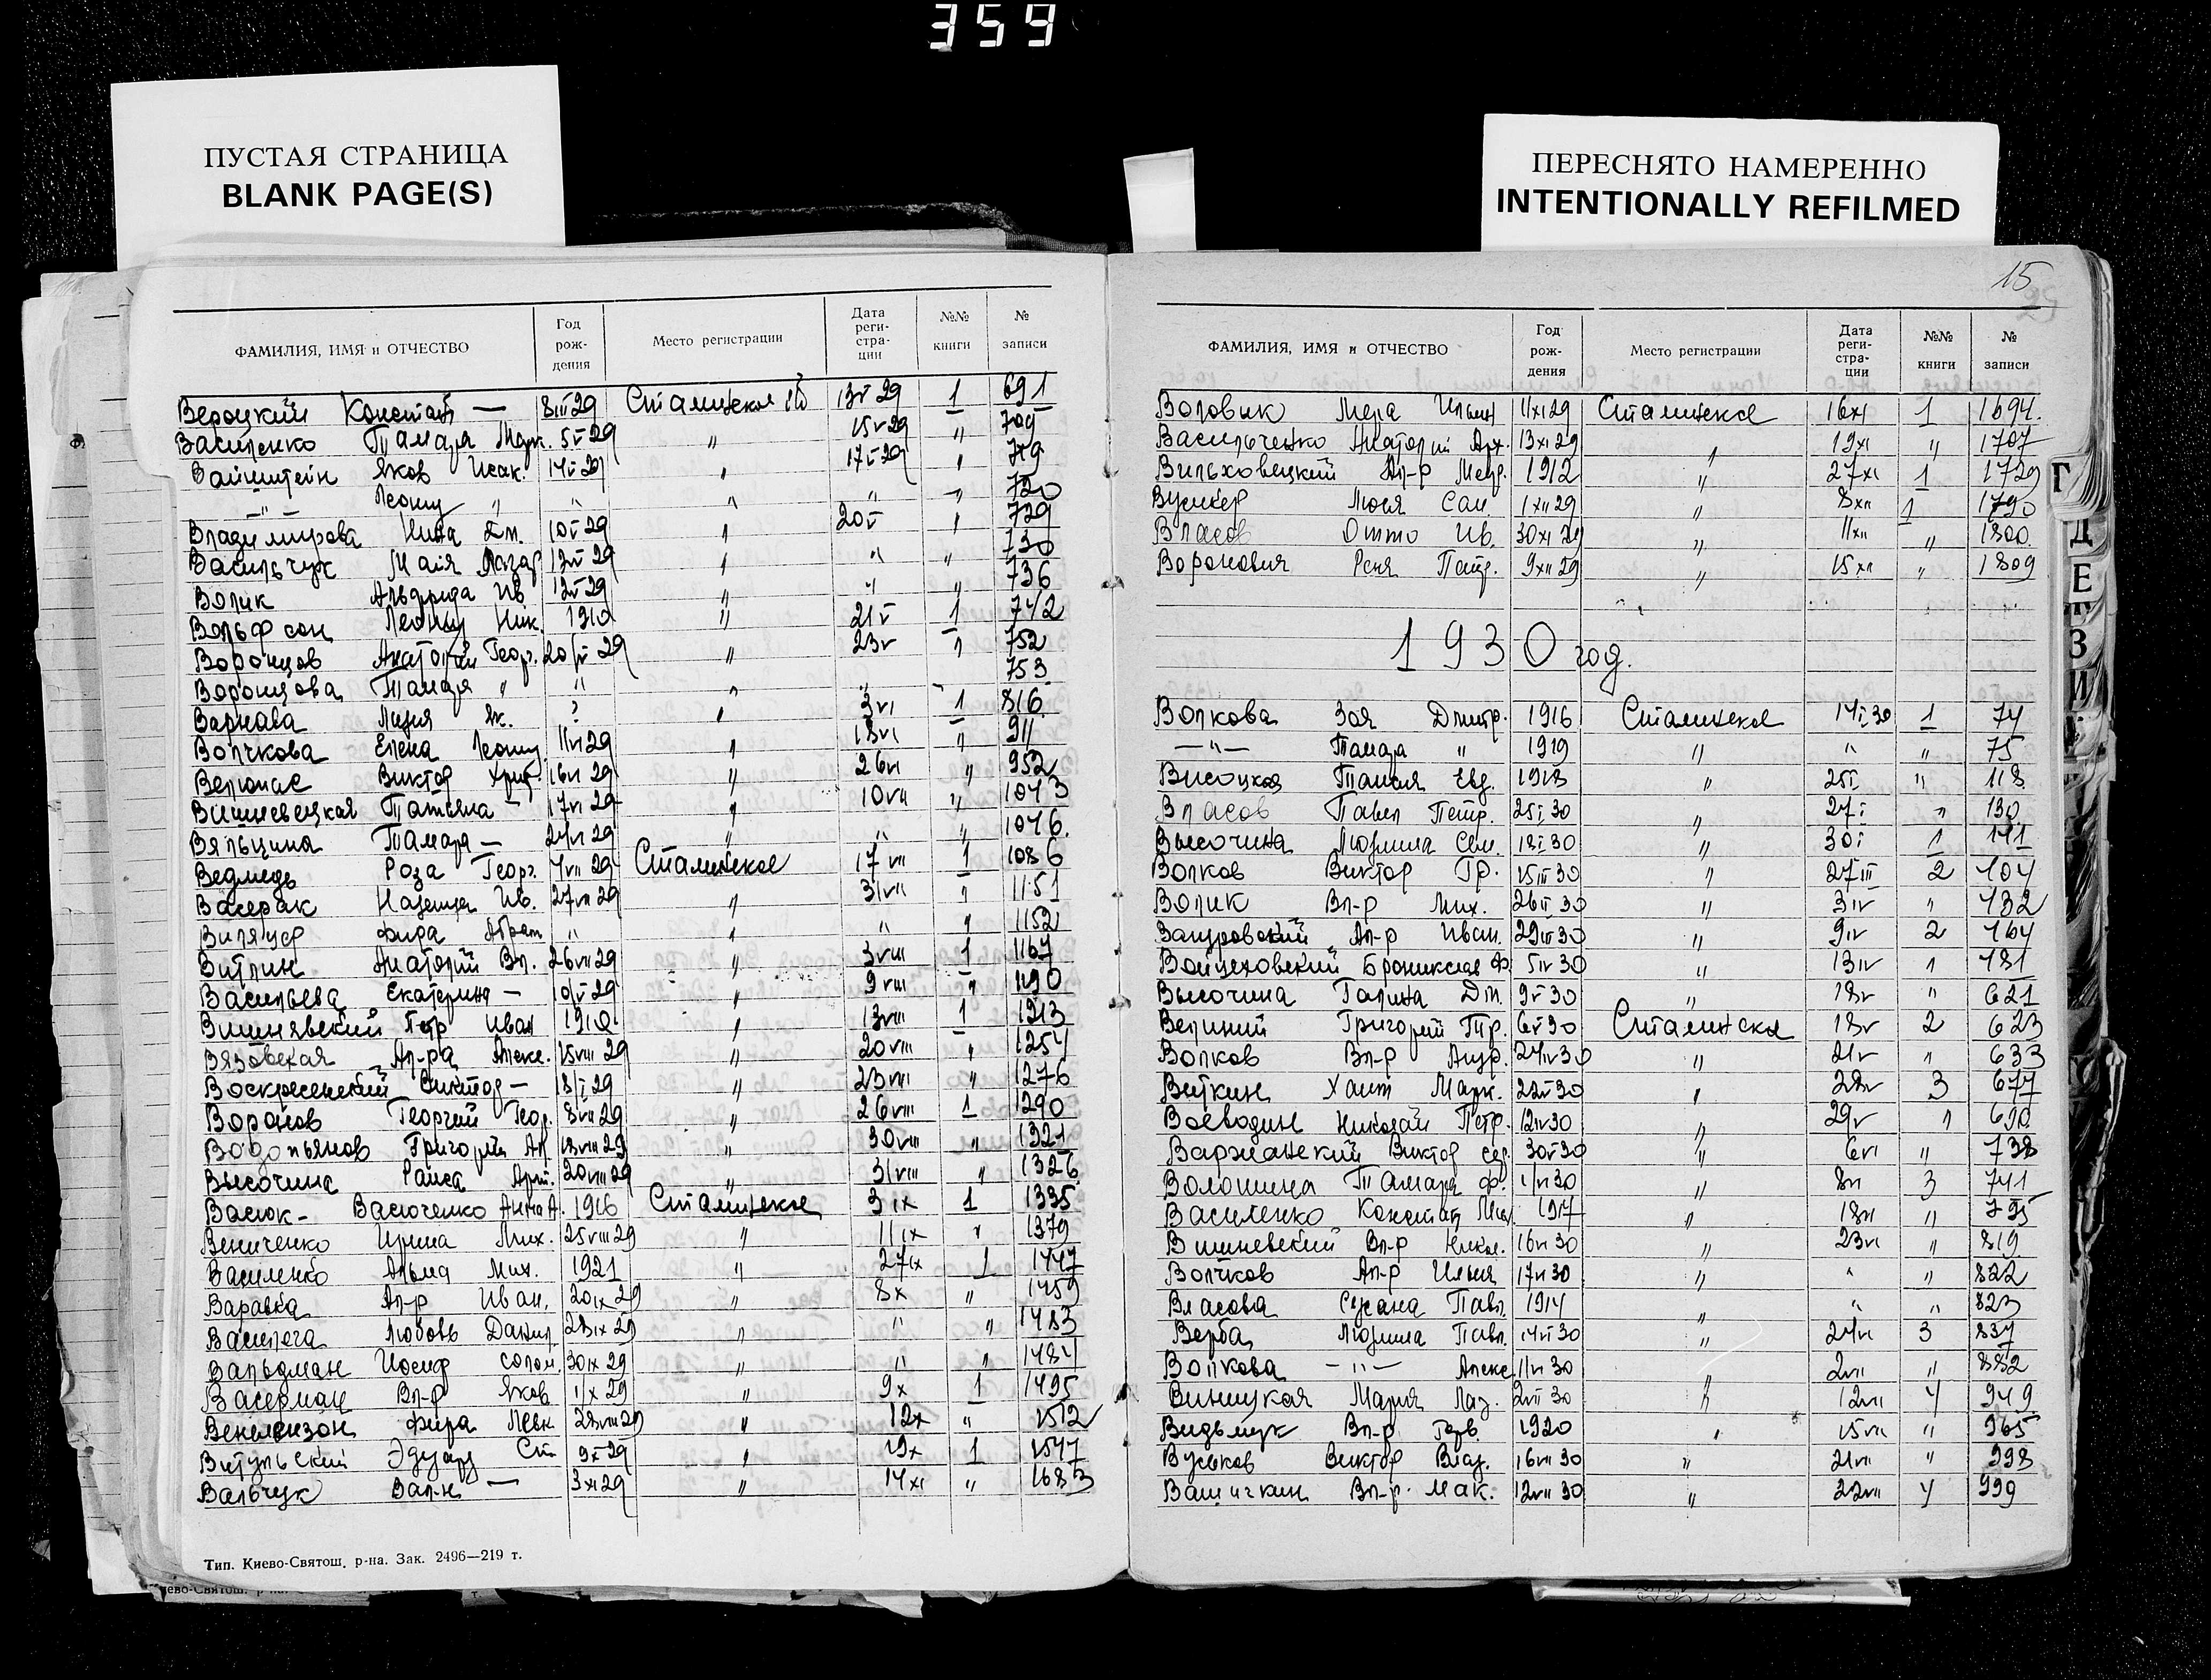 359
ПУСТАЯ СТРАНИЦА
BLANK PAGE(S)
ПЕРЕСНЯТО НАМЕРЕННО
INTENTIONALLY REFILMED
ФАМИЛИЯ, ИМЯ и ОТЧЕСТВО Год рождения Место регистрации Дата регистрации №№ книги № записи
Вероцкий — 8III29 Сталинское 13V29 1 691
Василенко Тамара Марк. 5V29 " 15V29 " 709
Вайнштейн Яков Исак. 14V29 " 17V29 " 719
—"— Леонид " " " " " 720
Владимирова Нина 10V29 " 20V " 729
Васильчук Майя Лазар 13V29 " " " 730
Волик Альфрида Ив 12V29 " " " 736
Вольфсон Леонид Ник. 1910 " 21V 1 742
Воронцов Анатолий Георг. 20/IV 29 " 23V " 752
Воронцова Тамара " " " " " 753
Варнава Лидия Як. ? " 3VI 1 816
Волчкова Елена Леонид 11VI29 " 18VI " 911
Виктор 16VI 29 " 26VI " 952
Вишневецкая Татьяна — 17VI 29 " 10VII " 1043
Вяльцина Тамара — 24VI 29 " " " 1046.
Ведмедь Роза Георг. 7VII 29 Сталинское 17VII 1 1086
Васерак Надежда Ив. 27VII 29 " 31VII " 1151
Фира Абрам " " " " 1152
Витлин Анатолий Вл. 26VII29 " 3VIII 1 1167
Васильева Екатерина — 10/V 29 " 9VIII " 1190
Вишнявский Петр Иван 1910 " 13VIII 1 1213
Вязовская Ал-ра Алекс. 15VIII 29 " 20VIII " 1254
Воскресенский Виктор — 18/V 29 " 23VIII " 1276
Воронов Георгий Геор. 8VIII 29 " 26VIII 1 1290
Водопьянов Григорий Ал. 18VIII 29 " 30VIII " 1321
Высочина Раиса 20VIII 29 " 31VIII " 1326
Васюк - Васюченко Анна А. 1916 Сталинское 3IX 1 1335
Вениченко Ирина Мих. 25VIII29 " 11IX " 1379
Василенко Альма Мих. 1921 " 27IX 1 1447
Варавка Ал-р Иван. 20IX29 " 8X " 1459
Василега Любовь Данил 23IX29 " " " 1483
Вальдман Иосиф Солом. 30IX 29 " " " 1484
Васерман Вл-р Яков 1/X 29 " 9X 1 1495
Фира Лейк 28VIII29 " 12X " 1512
Витульский Эдуард Ст 9X29 " 19X 1 1547
Вальчук Вал-н — 3XI29 " 14XI " 1683
Тип. Киево-Святош. р-на. Зак. 2496—219 т.
15
ФАМИЛИЯ, ИМЯ и ОТЧЕСТВО Год рождения Место регистрации Дата регистрации №№ книги № записи
Воловик Мера Ильин 11XI29 Сталинское 16XI 1 1694.
Васильченко Анатолий Арх. 13XI29 " 19XI " 1707
Вильховецкий Ал-р 1912 " 27XI 1 1729
Люся Сам. 1XII29 " 8XII 1 1790
Власов Отто Ив. 30XI 29 " 11XII " 1800.
Рена Петр. 9XII29 " 15XII " 1809
1930 год.
Волкова Зоя Дмитр. 1916 Сталинское 14I30 1 74
—"— Тамара " 1919 " " " 75
Высоцкая Таисия Евд. 1918 " 25I " 118
Власов Павел Петр. 25I 30 " 27I " 130
Высочина Людмила Сем. 18I30 " 30I 1 141
Волков Виктор Гр. 15III30 " 27III 2 404
Волик Вл-р Мих. 26II 30 " 3IV " 432
Ал-р Иван. 29III30 " 9IV 2 464
Войцеховский Бронислав Ф. 5IV 30 " 13IV " 481
Высочина Галина Дм. 9V30 " 18V " 621
Григорий 6V30 Сталинское 18V 2 623
Волков Вл-р Андр. 24IV30 " 21V " 633
Виткин Хаим Марк. 22V30 " 28V 3 677
Воеводин Николай Петр. 12IV30 " 29V " 690
Виктор 30V30 " 6VI " 738
Волошина Тамара Ф. 1/VI30 " 8VI 3 741
Василенко Констан. 1917 " 18VI " 795
Вишневский Вл-р Никол. 16VI 30 " 23VI " 819
Волчков Ал-р Ильич 17VI30 " " " 822
Власова Сусана Павл. 1914 " " " 823
Верба Людмила Павл. 14VI 30 " 24VI 3 837
Волкова —"— Алекс. 11VI 30 " 2VII " 882
Винницкая Мария Лаз. 2VII 30 " 12VII 4 949
Видьмук Вл-р 1920 " 15VII " 965
Вуськов Виктор Влад. 16VII 30 " 21VII " 998
Вл-р. Мак. 12VII 30 " 22VII 4 999
Г
Д
Е
З
И